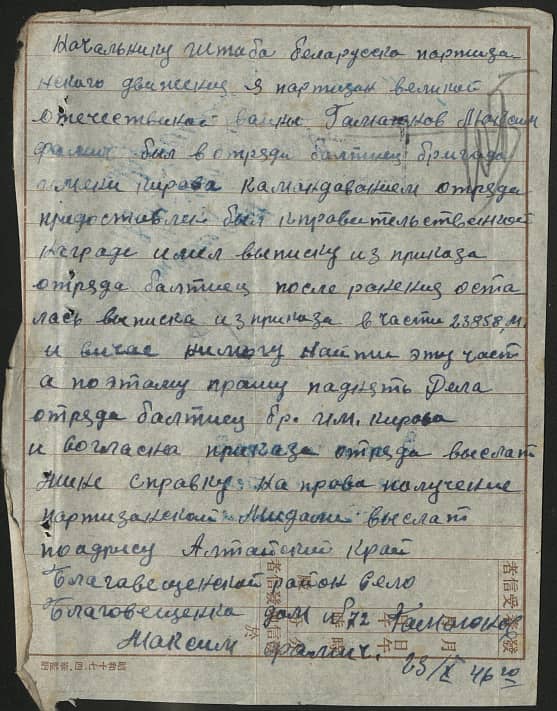 Начальнику Штаба беларусско партиза
нского движения я партизан великой
отечественой вайны Гаманюков Максим
фамич был в отряди балтиец бригада
имени кирова камандаванием отряда
придоставлен был к правительственной
награде имел выписку из приказа
отряда балтиец после ранения оста
лась выписка из приказа в части 23858, М.
и сичас нимогу найти эту част
а поэтому прашу паднять Дела
отряда балтиец бр. им. кирова
и согласна приказа отряда выслат
мине справку на права получение
партизанской Мидали выслат
по адрису Алтайский Край
Благавещенской район село
Благовещенка дом №72
Максим фамич.
23/X 46
發信
受信者
昭和十七、四